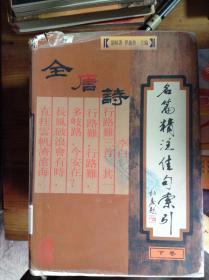 全唐詩
名篇精注佳句索引
下卷
李白
行路難三首 其一
行路難，行路難，
多岐路，今安在？
長風破浪會有時，
直挂雲帆濟滄海